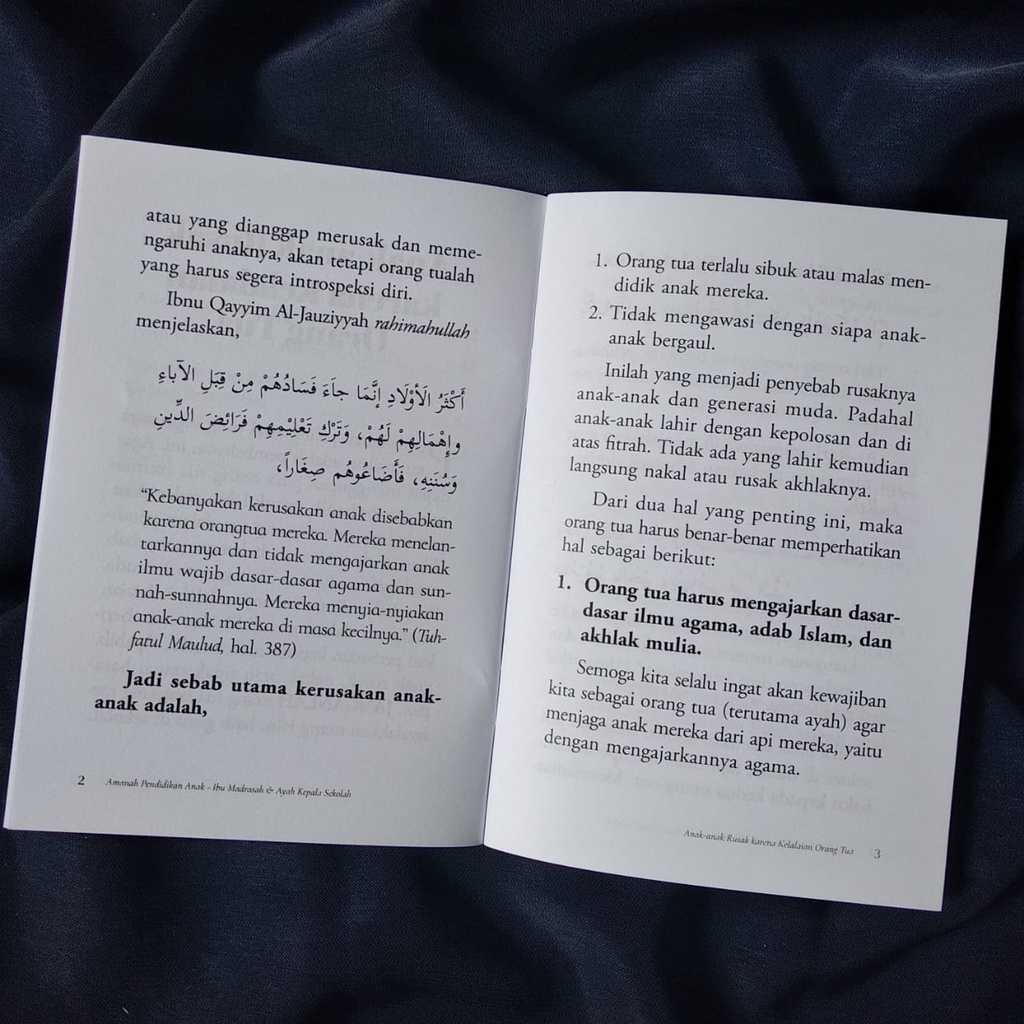 atau yang dianggap merusak dan meme-
ngaruhi anaknya, akan tetapi orang tualah
yang harus segera introspeksi diri.
Ibnu Qayyim Al-Jauziyyah rahimahullah
menjelaskan,
أَكْثَرُ الأَوْلَادِ إِنَّمَا جَاءَ فَسَادُهُمْ مِنْ قِبَلِ الآبَاءِ
وإِهْمَالِهِمْ لَهُمْ، وَتَرْكِ تَعْلِيمِهِمْ فَرَائِضَ الدِّينِ
وَسُنَنِهِ، فَأَضَاعُوهُم صِغَاراً،
“Kebanyakan kerusakan anak disebabkan
karena orangtua mereka. Mereka menelan-
tarkannya dan tidak mengajarkan anak
ilmu wajib dasar-dasar agama dan sun-
nah-sunnahnya. Mereka menyia-nyiakan
anak-anak mereka di masa kecilnya.” (Tuh-
fatul Maulud, hal. 387)
Jadi sebab utama kerusakan anak-
anak adalah,
2 Amanah Pendidikan Anak - Ibu Madrasah & Ayah Kepala Sekolah
1. Orang tua terlalu sibuk atau malas men-
didik anak mereka.
2. Tidak mengawasi dengan siapa anak-
anak bergaul.
Inilah yang menjadi penyebab rusaknya
anak-anak dan generasi muda. Padahal
anak-anak lahir dengan kepolosan dan di
atas fitrah. Tidak ada yang lahir kemudian
langsung nakal atau rusak akhlaknya.
Dari dua hal yang penting ini, maka
orang tua harus benar-benar memperhatikan
hal sebagai berikut:
1. Orang tua harus mengajarkan dasar-
dasar ilmu agama, adab Islam, dan
akhlak mulia.
Semoga kita selalu ingat akan kewajiban
kita sebagai orang tua (terutama ayah) agar
menjaga anak mereka dari api mereka, yaitu
dengan mengajarkannya agama.
Anak-anak Rusak karena Kelalaian Orang Tua 3